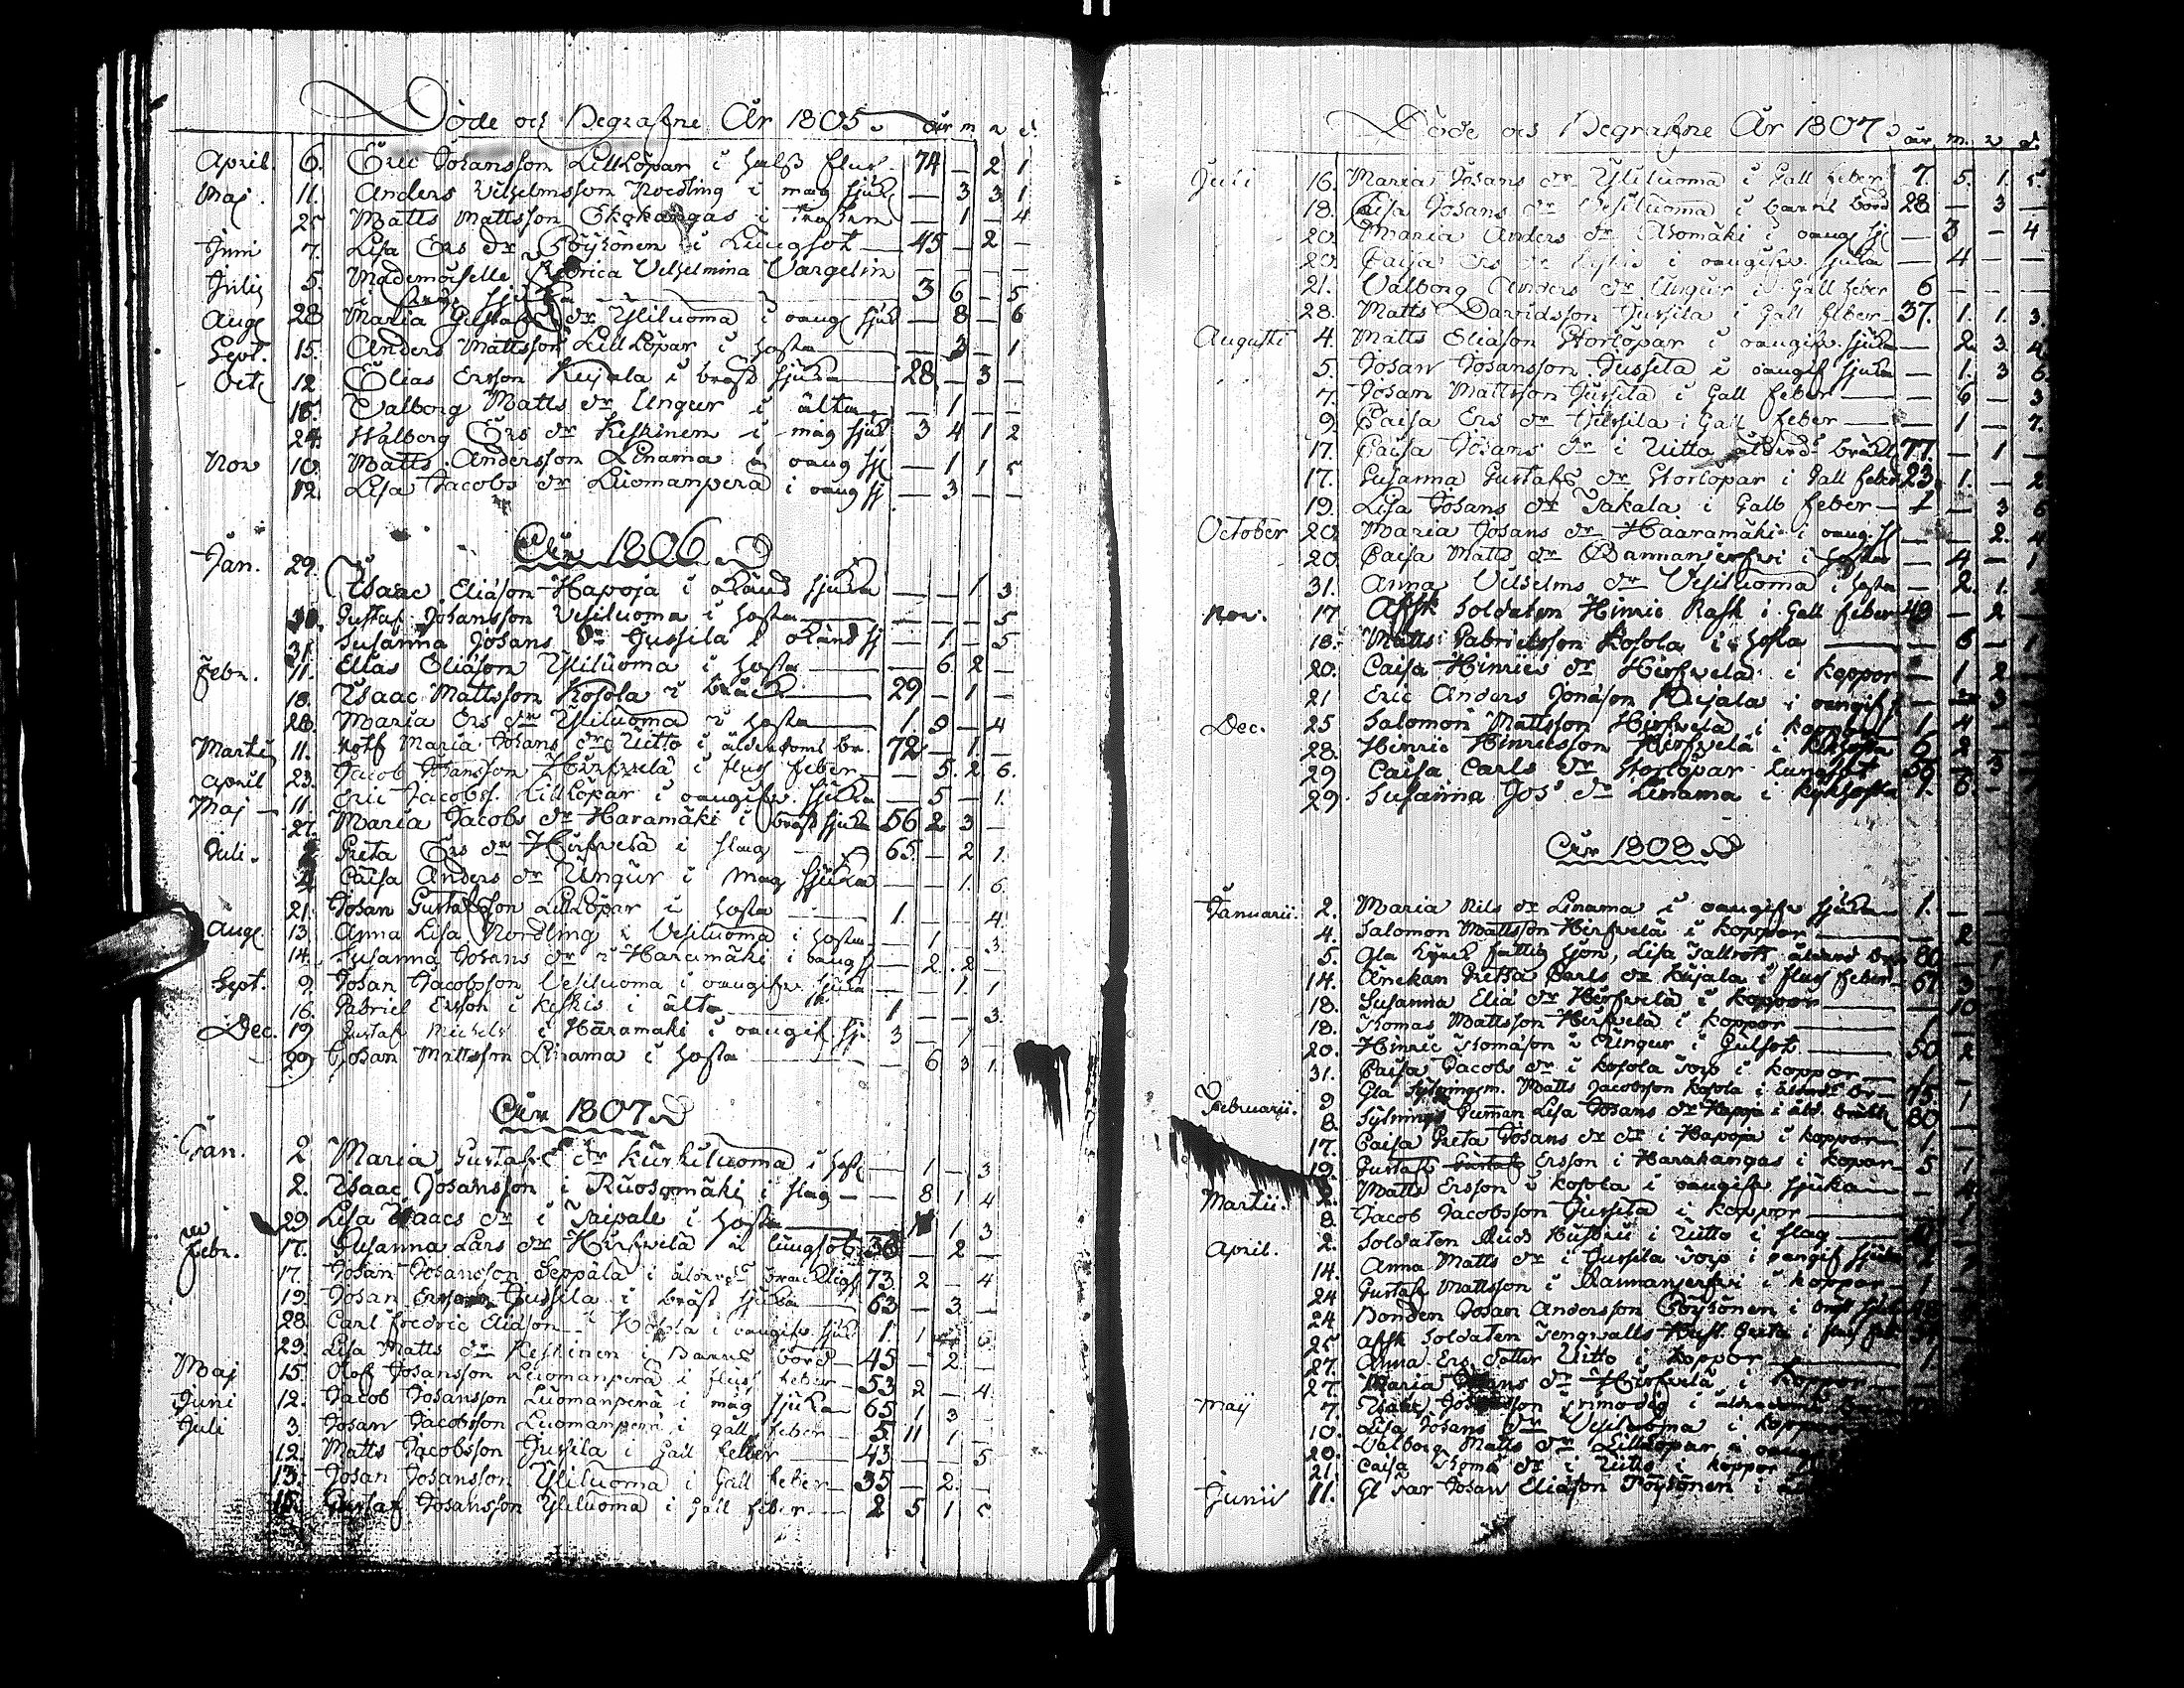 Döde och Begrafne År 1805. år m v d.
April. 6. Eric Johansson Lillköpar i hals flus 74 — 2 1
Maj. 11. Anders Vilhelmsson Nordling i mag sjuk — 3 3 1
25 Matts Mattsson Skokangas i — 1 — 4
Juni 7. Lisa Ers dr Pöyhönen i Lungsot — 45 — 2 —
Julij 5. Mademoiselle Vilhelmina Vargelin — — — —
3 6 — 5
Aug 28 Maria Gustafs dr Yliluoma i oang sjuk — 8 — 6
Sept. 15. Anders Mattsson Lillköpar i hosta — 3 — 1
Oct 12 Elias Ersson Kujala i bröst sjuka 28 — 3 —
18. Valborg Matts dr Ungur i älta — 1 — —
24. Walborg Ers dr Keskinen i mag sjuk 3 4 1 2
Nov 10. Matts Andersson Linama i oang sj — 1 1 5
12. Lisa Jacobs dr Luomanperä i oang sj — 3 — —
År 1806
Jan. 29. Isaac Eliason Hapoja i okänd sjuka — — 1 3
30. Gustaf Johansson Vesiluoma i hosta — — — 5
31. Susanna Johans dr Jussila i okänd sj — 1 — 5
Febr. 11. Elias Eliason Yliluoma i hosta — 6 2 —
18. Isaac Mattsson Kosola i bråck 29 — 1 —
28. Maria Ers dr Yliluoma i hosta 1. 9 — 4
Martij 11. Maria Johans dr Uitto i ålderdoms br. 72 — 1 —
April 23. Jacob Johansson Hirfvelä i flus feber — 5. 2. 6.
Maj — 11. Eric Jacobs. Lillköpar i oangifv. sjuka — 5 — 1.
27. Maria Jacobs dr Haramäki i bröst sjuka 56 2 3 —
Juli. Greta Ers dr Hirfvelä i slag 65. — 2 1.
4 Caisa Anders dr Ungur i mag sjuka — — 1. 6.
21. Johan Gustafsson Lillköpar i hosta 1. — — 4.
Aug 13. Anna Lisa Nordling i Vesiluoma i hosta — 1 — 3.
14. Susanna Johans dr i Haramäki i oang — 2. 2 —
Sept. 9. Johan Jacobsson Vesiluoma i oangifv. sjuka — — 1. 1
16. Gabriel Ersson i Keskis i älta 1 — — 3.
Dec. 19 Gustaf Michels i Haramaki i oangif. sj. 3 — 1 —
29 Johan Mattsson Linama i hosta — 6 3 1.
År 1807
Jan. 2 Maria Gustafs dr Kurkiluoma i host — 1 — 3
2. Isaac Johansson i Ruosomäki i slag — — 8 1 4
29 Lisa Isaacs dr i Taipale i hosta 1 3
Febr. 17. Susanna Lars dr Hirfvelä i lungsot 36 — 2 —
17. Johan Johansson Seppälä i ålderd. bräcklig 73 2 — 4
19. Johan Ersson Jussila i bröst sjuka 63 — 3 —
28. Carl Fredric Eliason i oangifv. sjuk 1. 1 6
29. Lisa Matts dr Keskinen i Barns börd — 45 — 2 —
Maj 15. Olof Johansson Luomanperä i flus feber — 53 2 — 4.
Juni 12. Jacob Johansson Luomanperä i mag sjuka 65 1 3 —
Juli 3. Johan Jacobsson Luomanperä i gall feber — 5 11 1 —
12. Matts Jacobsson Jussila i Gall feber 43 — — 5
13. Johan Johansson Yliluoma i Gall feber 35 — 2. —
15. Gustaf Johansson Yliluoma i Gall feber — 2 5 1 5
Döde och Begrafne År 1807. år m. v d.
Juli 16. Maria Johans dr Yliluoma i Gall feber 7 5. 1. 5.
18. Caisa Johans dr Vesiluoma i barns börd 28 — 3 —
20. Maria Anders dr Ahomäki i oang sj — 3 — 4
20. Caisa Ers dr Keskis i oangifv. sjuka — 4 — —
21. Valborg Anders dr Ungur i Gall feber 6 — — —
28. Matts Davidsson Jussila i Gall feber 37. 1. 1. 3.
Augusti 4. Matts Eliason Storlöpar i oangifv. sjuka — 2 3 4
5. Johan Johansson Jussila i oangif sjuka — 1. 3 6
7. Johan Mattsson Jussila i Gall feber — 6 — 3
9. Caisa Ers dr Jussila i Gall feber — 1 — 7.
17. Caisa Johans dr i Uitto ålderd. bräckl 77. — 1 —
17. Susanna Gustafs dr Storlöpar i Gall feber 23. 1. — 2
19. Lisa Johans dr Jakala i Gall feber — 1 — 3 6
October 20. Maria Johans dr Haaramäki i oang. sj — — 2. 4
20. Caisa Matts dr i hosta — 4 — 1
31. Anna Vilhelms dr Vesiluoma i hosta — 2. 1. 2
Nov. 17 Afsk Soldaten Hinric Rask i Gall feber 49 — 2 —
18. Matts Gabrielsson Kosola i hosta — 6 — 1
20. Caisa Hinrics dr Hirfvelä i koppor — 1 2
21 Eric Anders Jonason Kujala i oangif — — 3
Dec. 25 Salomon Mattsson Hirfvelä i koppor 1 4 —
28. Hinric Hinricsson Hirfvelä i kikhosta 6 2 —
29 Caisa Carls dr Storlöpar lungsot 59 — 3
29. Susanna Jos dr Linama i kikhosta 1. 6. —
År 1808
Januarii. 2. Maria Nils dr Linama i oangifv sjuka 1. — —
4. Salomon Mattsson Hirfvelä i koppor — 2
5. Gla kyrck fattig hjon, Lisa Tallrott ålderd br. 80 — 1
14. Änckan Gretha Carls dr Kujala i flus feber 67 3
18. Susanna Elia dr Hirfvelä i koppor — 10
18. Thomas Mattsson Hirfvelä i koppor 1 —
20. Hinric Thomason i Ungur i Gulsot 50 2
31. Caisa Jacobs dr i Kosola torp i koppor 1 —
Februarii. 9 Gla Sytningsm. Matts Jacobsson Kosola i ålderd br — 75. 1
8. Sytnings Gumman Lisa Johans dr Hapoja i åld. bräckl 80 —
17. Caisa Greta Johans dr dr i Hapoja i koppor 1
19. Gustaf Gustaf Ersson i Harakangas i kopor 5 1
Martii. 2. Matts Ersson i Kosola i oangifv. sjuka — 4
8. Jacob Jacobsson Jussila i koppor 1
April. 2. Soldaten Hustru i Uitto i slag
14. Anna Matts dr i Jussila torp i oangif sjuka
24 Gustaf Mattsson i i koppor 1
24 Bonden Johan Andersson Pöyhönen i bröst sjuk
25 Afsk Soldaten Tengvalls Hust. Greta i
27. Anna Ers dotter Uitto i koppor 1
27. Maria dr Hirfvelä i koppor
Maij 7. Isaac Johansson i ålderdoms
10. Lisa Johans dr Vesiluoma i koppor
20. Valborg Matts dr Lillköpar i oang
21. Caisa Thoma dr i Uitto i koppor
Junii 11. Gl. far Johan Eliason Pöyhönen i